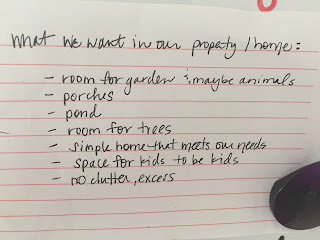 what we want in our property / home:
- room for garden & maybe animals
- porches
- pond
- room for trees
- simple home that meets our needs
- space for kids to be kids
- no clutter, excess